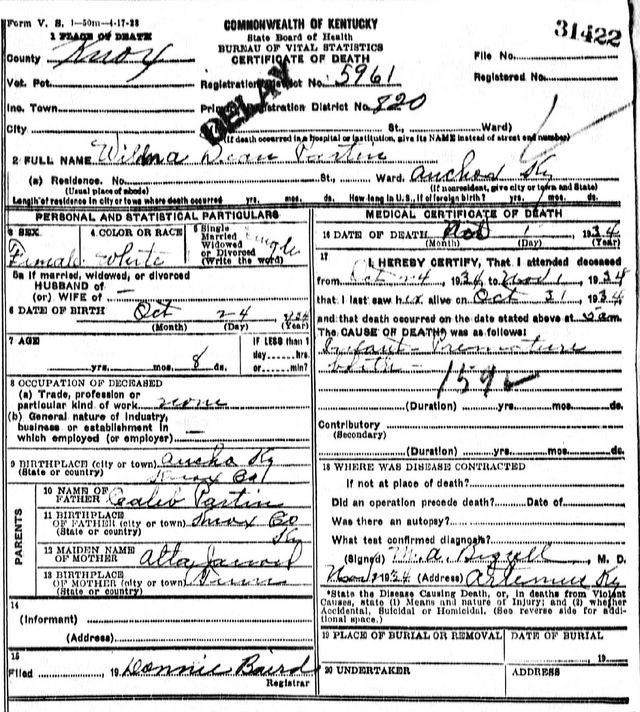 Form V. S. 1—50m—4-17-28
COMMONWEALTH OF KENTUCKY
State Board of Health
BUREAU OF VITAL STATISTICS
CERTIFICATE OF DEATH
31422
1 PLACE OF DEATH
County Knox
File No.
Vot. Pct.
Registration District No. 5961
Registered No.
DELAY
Inc. Town
Primary Registration District No. 820
City
No.
St., Ward)
(If death occurred in a hospital or institution, give its NAME instead of street and number)
2 FULL NAME Wilma Dean Partin
(a) Residence. No. St., Ward. Ky
(Usual place of abode)
(If nonresident, give city or town and State)
Length of residence in city or town where death occurred yrs. mos. ds. How long in U.S., if of foreign birth? yrs. mos. ds.
PERSONAL AND STATISTICAL PARTICULARS
3 SEX
Female
4 COLOR OR RACE
White
5 Single
Married
Widowed
or Divorced
(Write the word)
Single
5a If married, widowed, or divorced
HUSBAND OF
(or) WIFE OF —
6 DATE OF BIRTH Oct 24 1934
(Month) (Day) (Year)
7 AGE
yrs. mos. 8 ds.
IF LESS than 1
day hrs.
or min?
8 OCCUPATION OF DECEASED
(a) Trade, profession or
particular kind of work none
(b) General nature of industry,
business or establishment in
which employed (or employer) —
9 BIRTHPLACE (city or town) Ky
(State or country) Knox Co
PARENTS
10 NAME OF
FATHER Caleb Partin
11 BIRTHPLACE
OF FATHER (city or town) Knox Co
(State or country) Ky
12 MAIDEN NAME
OF MOTHER
13 BIRTHPLACE
OF MOTHER (city or town)
(State or country)
14
(Informant)
(Address)
15
Filed 19 Donnie Baird
Registrar
MEDICAL CERTIFICATE OF DEATH
16 DATE OF DEATH Nov 1 1934
(Month) (Day) (Year)
17
I HEREBY CERTIFY, That I attended deceased
from Oct 24, 1934, to Nov 1, 1934
that I last saw her alive on Oct 31, 1934
and that death occurred on the date stated above at m.
The CAUSE OF DEATH was as follows:
Infant Premature
birth
159
(Duration) yrs. mos. ds.
Contributory
(Secondary)
(Duration) yrs. mos. ds.
18 WHERE WAS DISEASE CONTRACTED
If not at place of death?
Did an operation precede death? Date of
Was there an autopsy?
What test confirmed diagnosis?
(Signed) M. D.
Nov 1 1934 (Address) Artemus Ky
*State the Disease Causing Death, or, in deaths from Violent
Causes, state (1) Means and nature of Injury; and (2) whether
Accidental, Suicidal or Homicidal. (See reverse side for addi-
tional space.)
19 PLACE OF BURIAL OR REMOVAL
DATE OF BURIAL
19
20 UNDERTAKER
ADDRESS